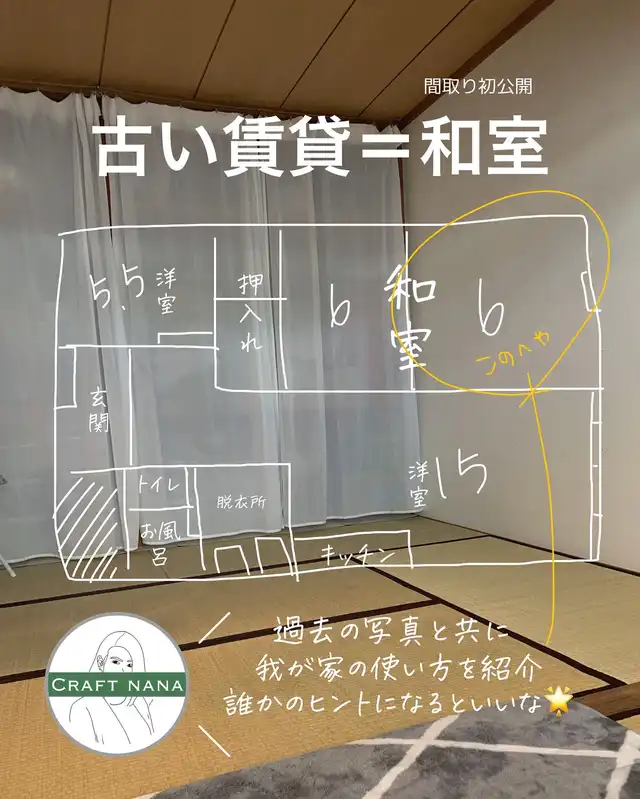 間取り初公開
古い賃貸＝和室
5.5 洋室
押入れ
6
和室
6
このへや
玄関
洋室 15
トイレ
脱衣所
お風呂
キッチン
過去の写真と共に
我が家の使い方を紹介
誰かのヒントになるといいな🌟
CRAFT NANA